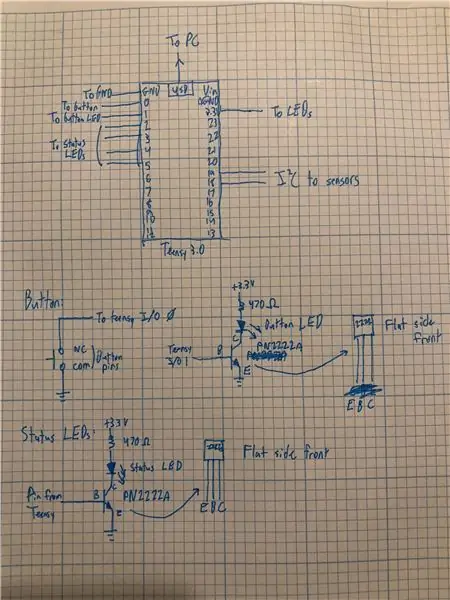 To PC
To GND
To Button
To Button LED
To Status
LEDs
GND
USB
Vin
AGND
3.3
0
1
2
3
4
5
6
7
8
9
10
11
12
23
22
21
20
19
18
17
16
15
14
13
To LEDs
I²C to sensors
Teensy 3.0
Button:
To teensy I/O Ø
NC
com
Button
pins
+3.3V
470Ω
Button LED
C
PN2222A
Teensy
I/O 1
B
E
2222
Flat side
front
E B C
Status LEDs:
+3.3V
470Ω
Status LED
C
Pin from
Teensy
B
PN2222A
E
Flat side front
E B C